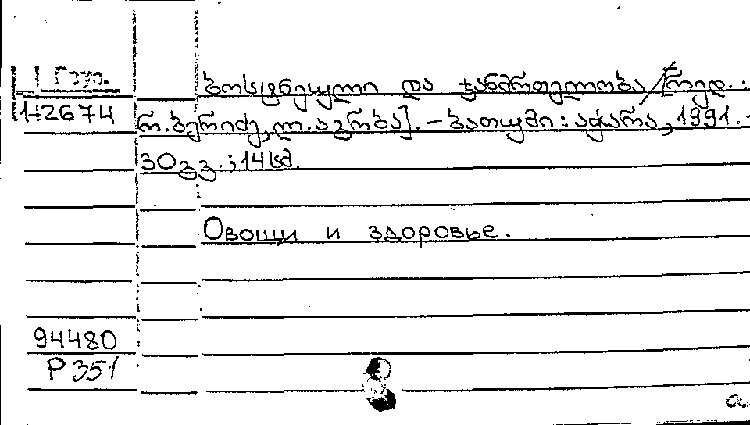 ბოსტნეული და ჯანმრთელობა /[რედ.:
1-2674 რ. ბერიძე, ლ. აგრბა]. – ბათუმი: აჭარა, 1991. –
30 გვ.; 14 სმ.
Овощи и здоровье.
94480
P 351